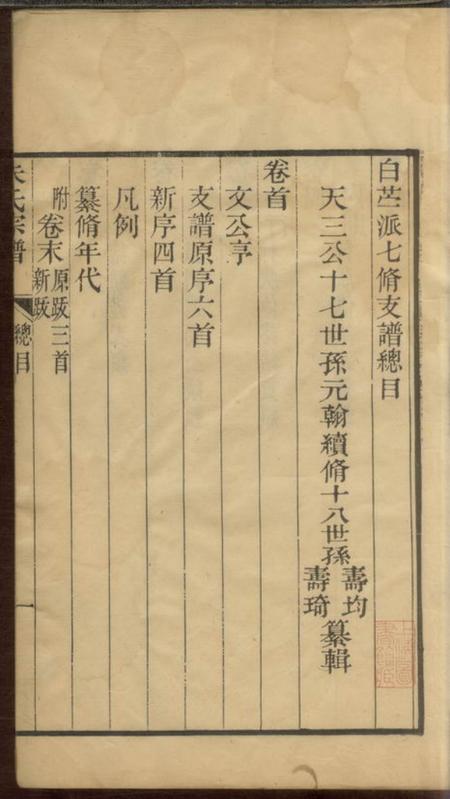 白茆派七脩支譜總目
天三公十七世孫元翰續脩十八世孫壽均壽琦纂輯
卷首
文公序
支譜原序六首
新序四首
凡例
纂脩年代
附卷末原跋三首新跋
朱氏宗譜 總目 一